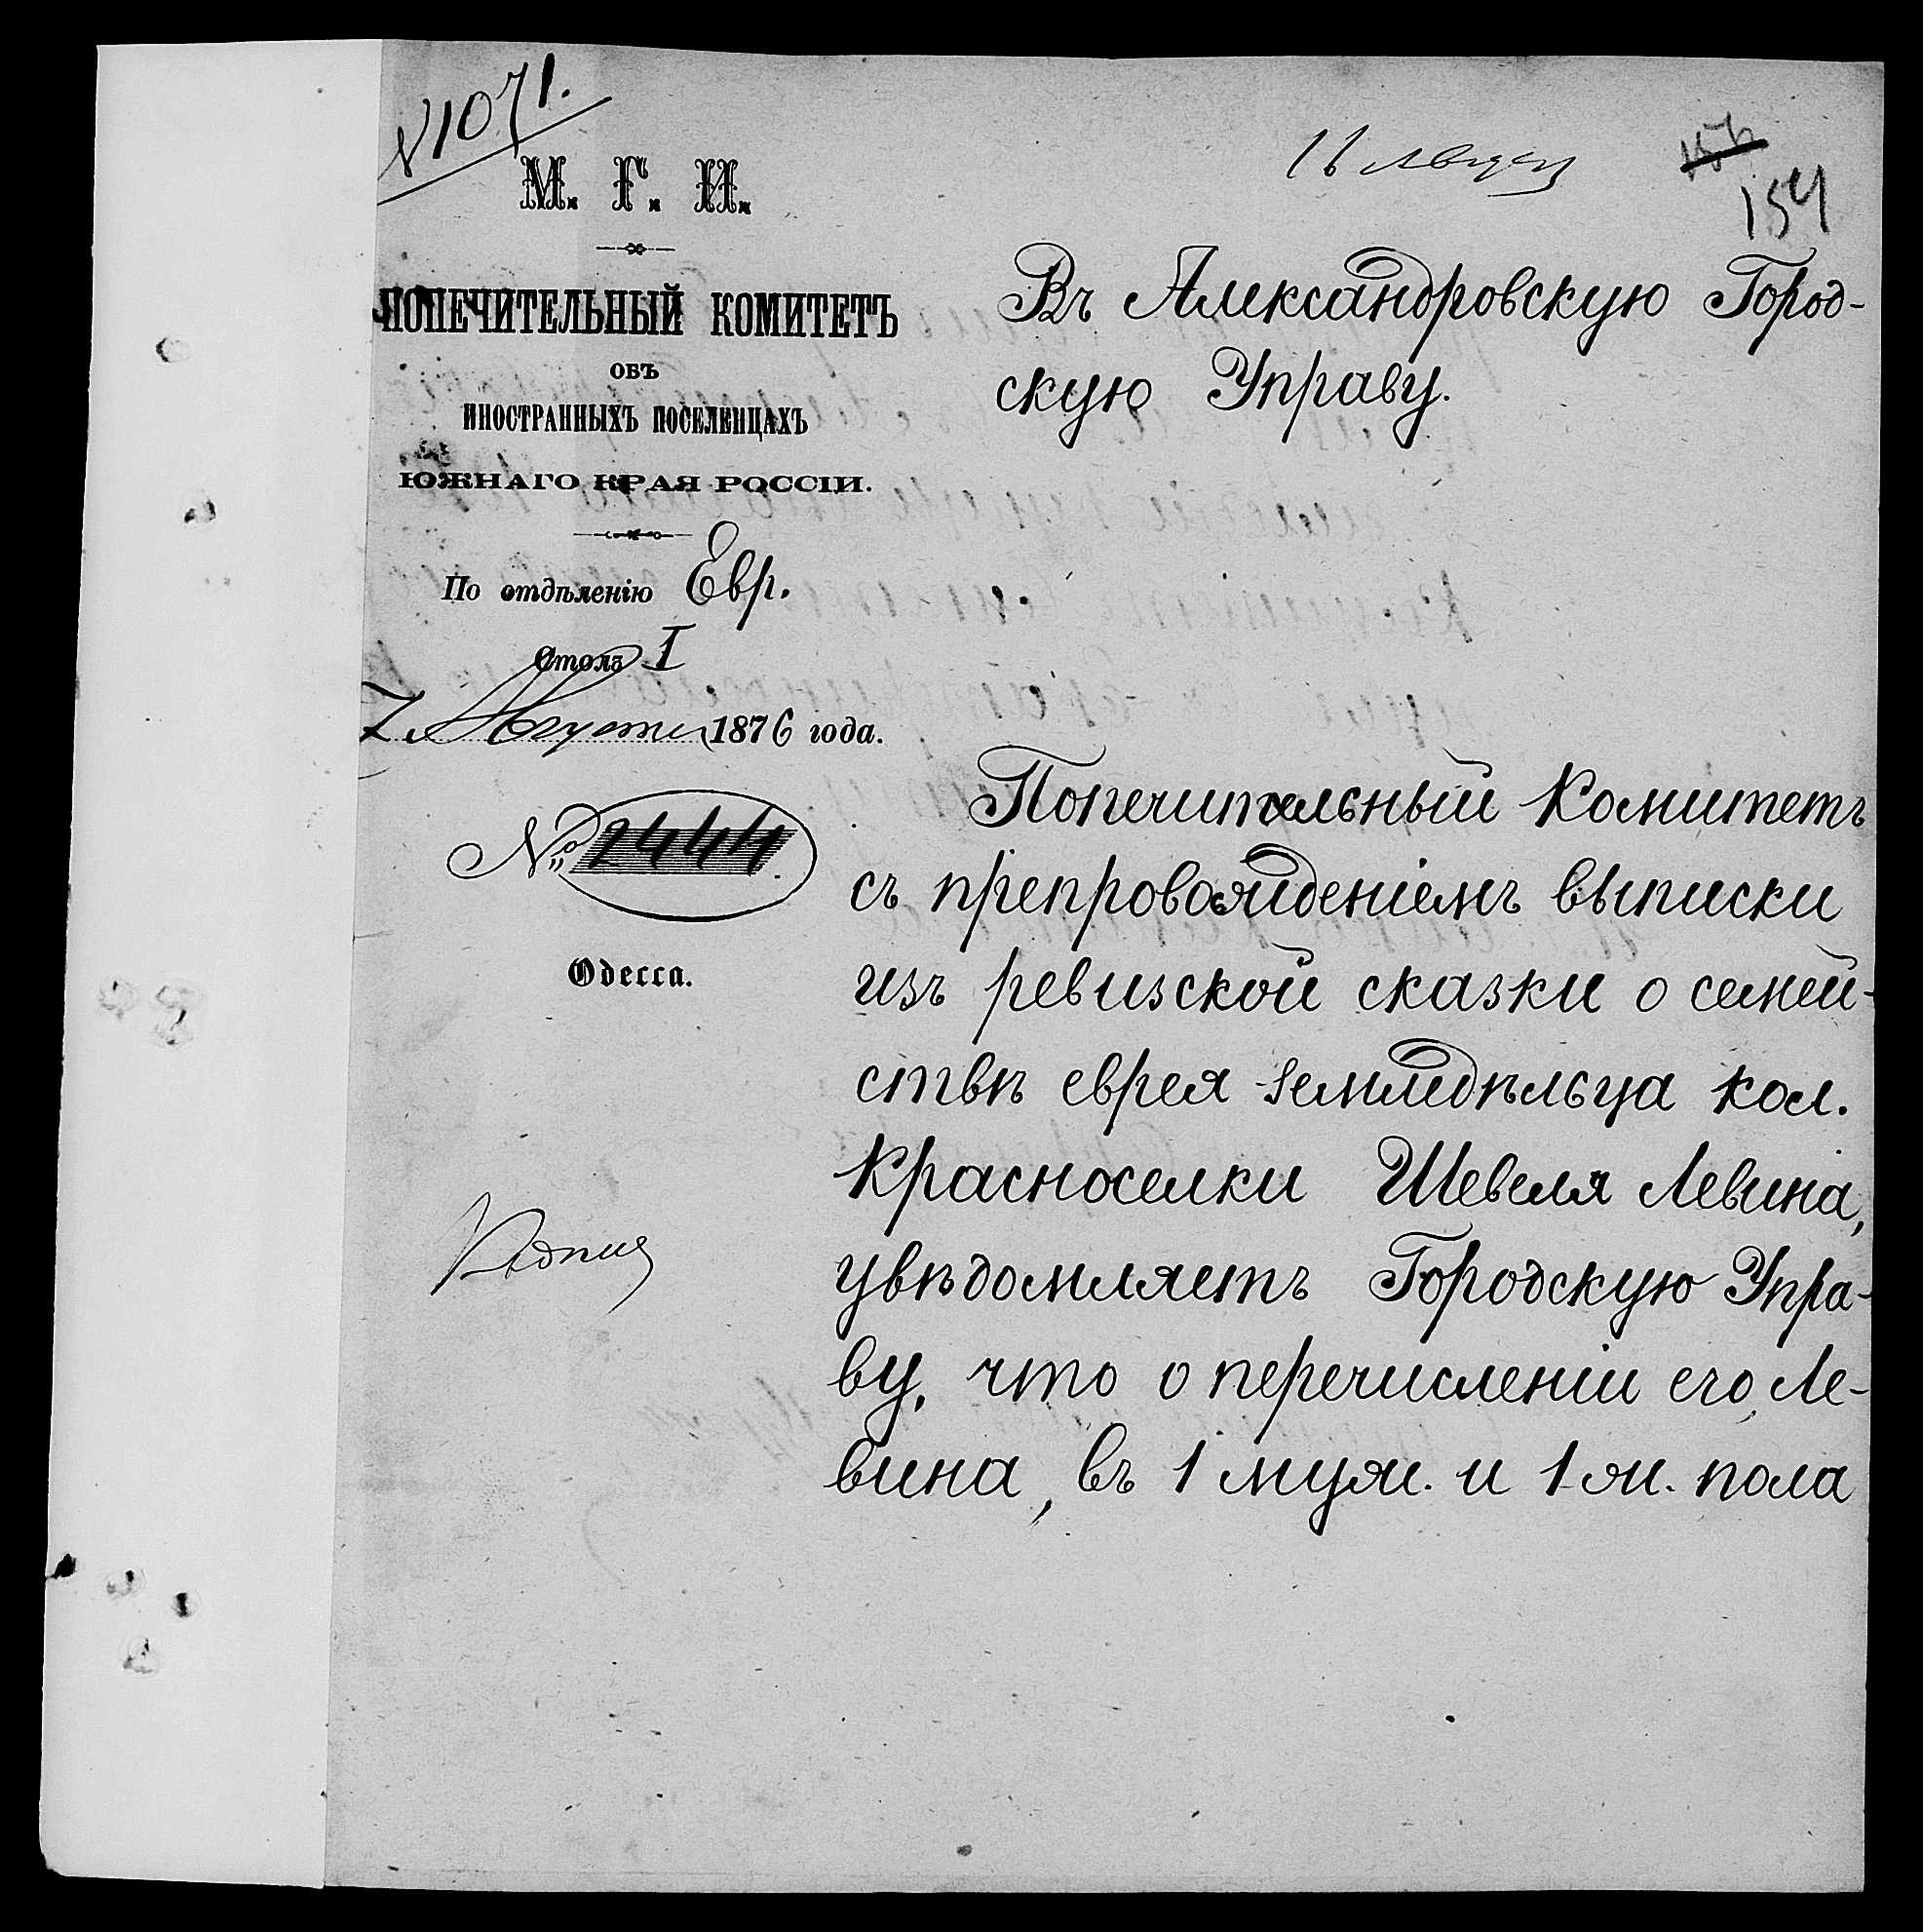 № 1071.
154
М. Г. И.
ПОПЕЧИТЕЛЬНЫЙ КОМИТЕТЪ
ОБЪ
ИНОСТРАННЫХЪ ПОСЕЛЕНЦАХЪ
ЮЖНАГО КРАЯ РОССІИ.
По отдѣленію Евр.
Столъ I
7 Августа 1876 года.
№ 2444.
Одесса.
Въ Александровскую Город-
скую Управу.
Попечительный Комитетъ
съ препровожденіемъ выписки
изъ ревизской сказки о семей-
ствѣ еврея земледѣльца кол.
Красноселки Шевеля Левина,
увѣдомляетъ Городскую Упра-
ву, что о перечисленіи его, Ле-
вина, въ 1 муж. и 1 ж. пола